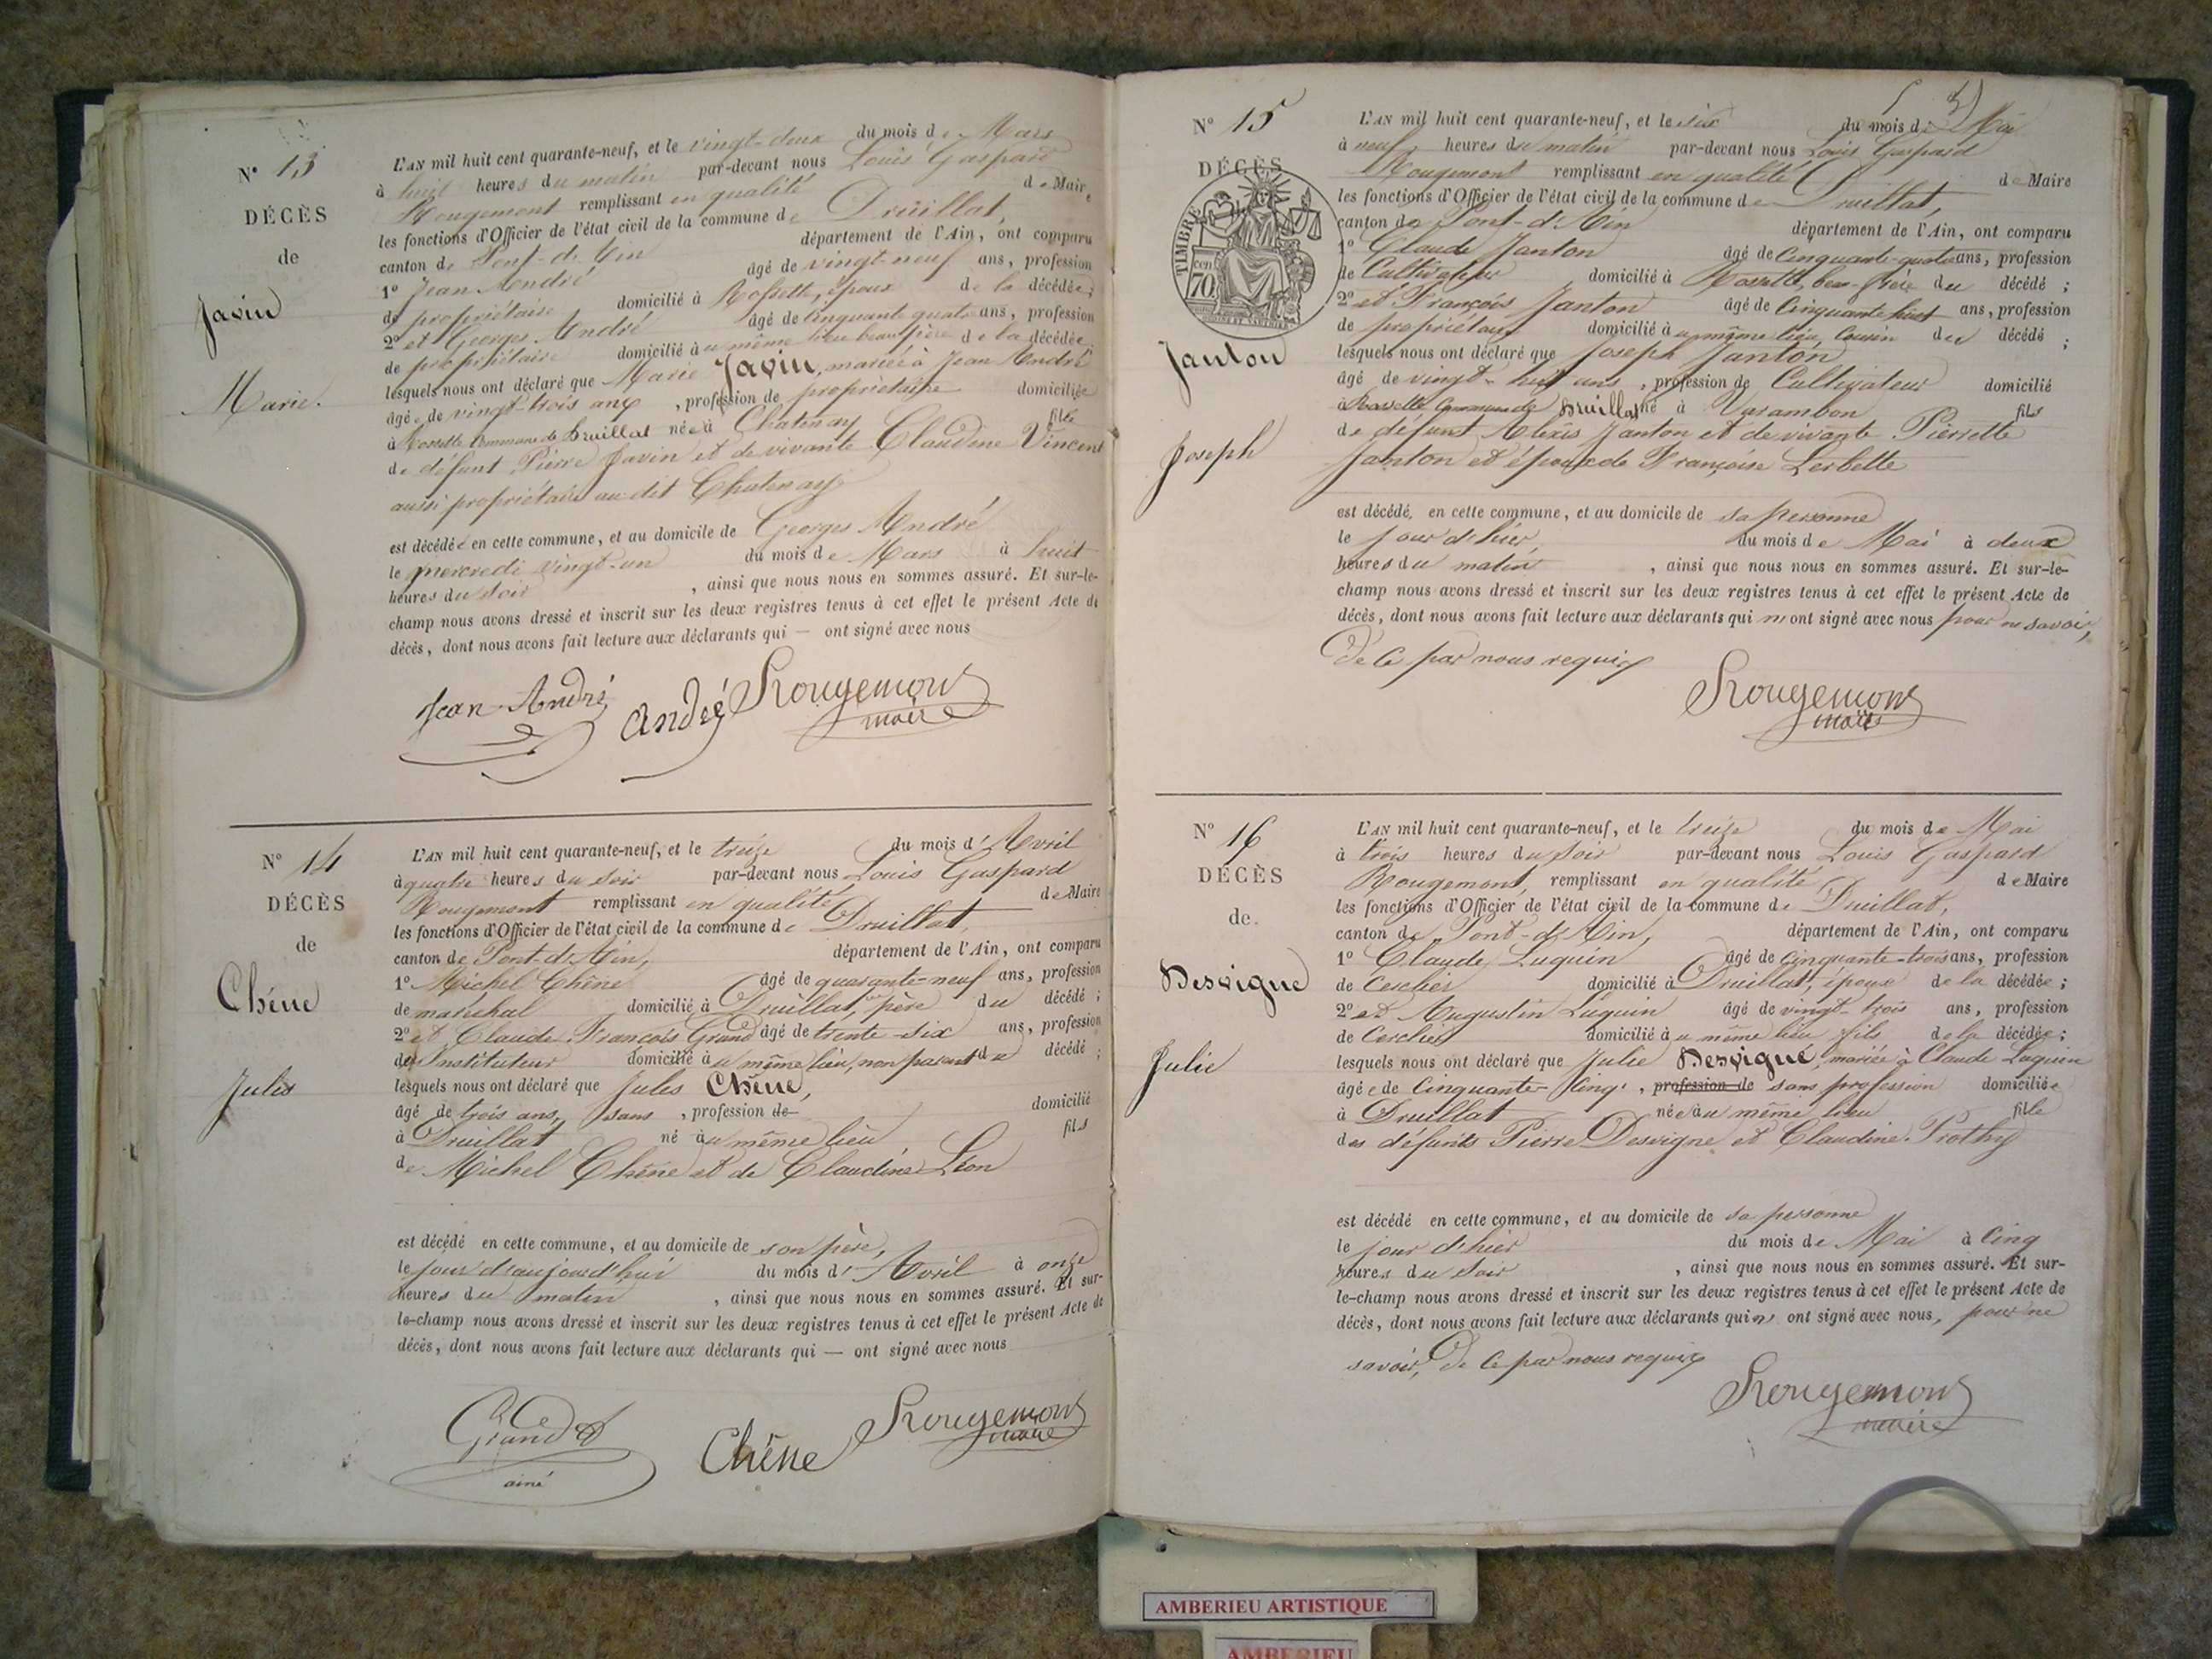 N° 13
DÉCÈS
de
Javin
Marie.
L'AN mil huit cent quarante-neuf, et le vingt-deux du mois de Mars
à huit heures du matin par-devant nous Louis Gaspard
Rougemont remplissant en qualité de Maire
les fonctions d'Officier de l'état civil de la commune de Druillat,
canton de Pont-d'Ain département de l'Ain, ont comparu
1° Jean André âgé de vingt-neuf ans, profession
de propriétaire domicilié à Rossette, époux de la décédée;
2° et Georges André âgé de cinquante quatre ans, profession
de propriétaire domicilié au même lieu beau père de la décédée
lesquels nous ont déclaré que Marie Javin, mariée à Jean André
âgée de vingt-trois ans, profession de propriétaire domiciliée
à Rossette Commune de Druillat née à Chatenay fille
de défunt Pierre Javin et de vivante Claudine Vincent
aussi propriétaire au dit Chatenay
est décédée en cette commune, et au domicile de Georges André
le mercredi vingt-un du mois de Mars à huit
heures du soir, ainsi que nous nous en sommes assuré. Et sur-le-
champ nous avons dressé et inscrit sur les deux registres tenus à cet effet le présent Acte de
décès, dont nous avons fait lecture aux déclarants qui — ont signé avec nous
Jean André André Rougemont
maire
N° 14
DÉCÈS
de
Chêne
Jules
L'AN mil huit cent quarante-neuf, et le treize du mois d'Avril
à quatre heures du soir par-devant nous Louis Gaspard
Rougemont remplissant en qualité de Maire
les fonctions d'Officier de l'état civil de la commune de Druillat,
canton de Pont-d'Ain, département de l'Ain, ont comparu
1° Michel Chêne âgé de quarante-neuf ans, profession
de maréchal domicilié à Druillat, père du décédé;
2° et Claude François Grand âgé de trente-six ans, profession
d'Instituteur domicilié au même lieu, non parent du décédé;
lesquels nous ont déclaré que Jules Chêne,
âgé de trois ans, sans, profession de domicilié
à Druillat né au même lieu fils
de Michel Chêne et de Claudine Léon
est décédé en cette commune, et au domicile de son père,
le jour d'aujourd'hui du mois d'Avril à onze
heures du matin, ainsi que nous nous en sommes assuré. Et sur-
le-champ nous avons dressé et inscrit sur les deux registres tenus à cet effet le présent Acte de
décès, dont nous avons fait lecture aux déclarants qui — ont signé avec nous
Grand
ainé
Chêne
Rougemont
maire
N° 15
DÉCÈS
TIMBRE
70
Janton
Joseph
L'AN mil huit cent quarante-neuf, et le six du mois de Mai
à neuf heures du matin par-devant nous Louis Gaspard
Rougemont remplissant en qualité de Maire
les fonctions d'Officier de l'état civil de la commune de Druillat,
canton de Pont-d'Ain département de l'Ain, ont comparu
1° Claude Janton âgé de cinquante-quatre ans, profession
de Cultivateur domicilié à Rossette, beau-frère du décédé;
2° et François Janton âgé de cinquante huit ans, profession
de propriétaire domicilié au même lieu, Cousin du décédé;
lesquels nous ont déclaré que Joseph Janton
âgé de vingt-huit ans, profession de Cultivateur domicilié
à Rossette Commune de Druillat né à Varambon fils
de défunt Alexis Janton et de vivante Pierrette
Janton et époux de Françoise Lerbette
est décédé, en cette commune, et au domicile de sa personne
le jour d'hier, du mois de Mai à deux
heures du matin, ainsi que nous nous en sommes assuré. Et sur-le-
champ nous avons dressé et inscrit sur les deux registres tenus à cet effet le présent Acte de
décès, dont nous avons fait lecture aux déclarants qui n'ont signé avec nous pour ne savoir,
De ce par nous requis
Rougemont
maire
N° 16
DÉCÈS
de
Desvigne
Julie
L'AN mil huit cent quarante-neuf, et le treize du mois de Mai
à trois heures du soir par-devant nous Louis Gaspard
Rougemont, remplissant en qualité de Maire
les fonctions d'Officier de l'état civil de la commune de Druillat,
canton de Pont-d'Ain, département de l'Ain, ont comparu
1° Claude Luquin âgé de cinquante-trois ans, profession
de Cerclier domicilié à Druillat, époux de la décédée;
2° et Augustin Luquin âgé de vingt-trois ans, profession
de Cerclier domicilié au même lieu fils de la décédée;
lesquels nous ont déclaré que Julie Desvigne, mariée à Claude Luquin
âgée de cinquante-cinq, profession de sans profession domiciliée
à Druillat née au même lieu fille
des défunts Pierre Desvigne et Claudine Prothy
est décédé en cette commune, et au domicile de sa personne
le jour d'hier du mois de Mai à cinq
heures du soir, ainsi que nous nous en sommes assuré. Et sur-
le-champ nous avons dressé et inscrit sur les deux registres tenus à cet effet le présent Acte de
décès, dont nous avons fait lecture aux déclarants qui n'ont signé avec nous, pour ne
savoir, De ce par nous requis
Rougemont
maire
AMBERIEU ARTISTIQUE
AMBERIEU